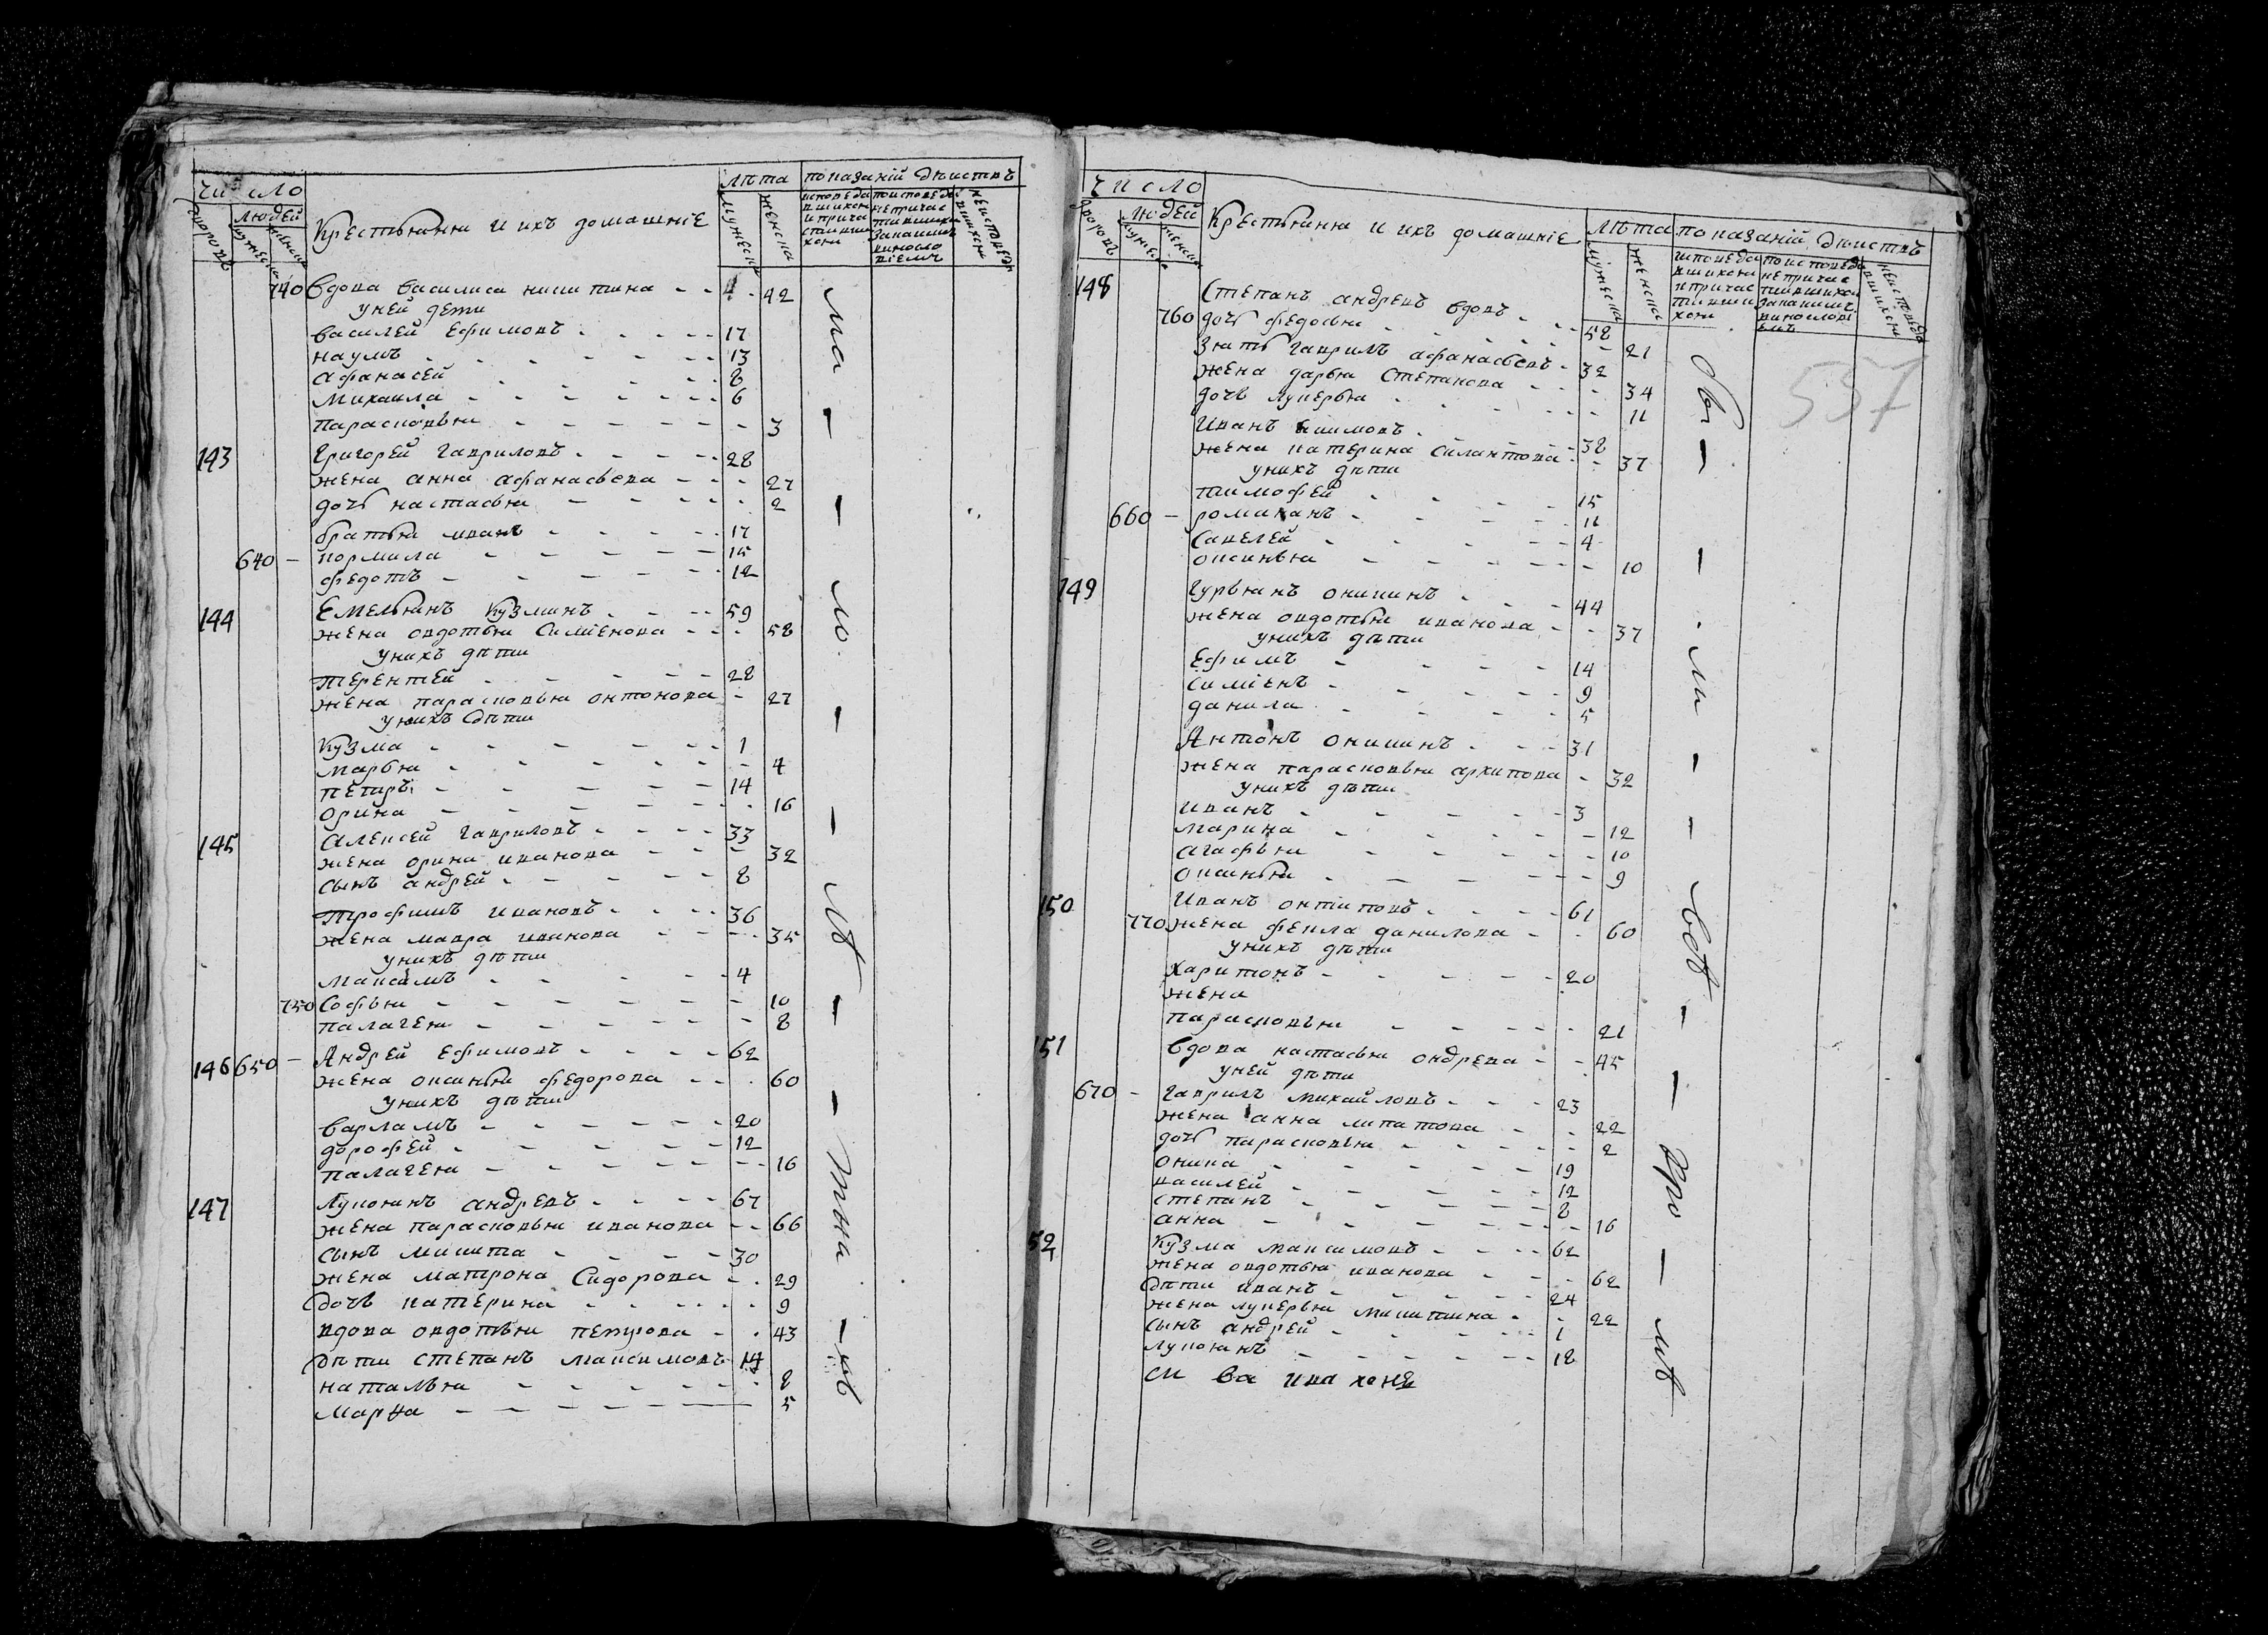 число
лѣта показаній дѣиствъ
дворовъ
людей
мужеска
женска
Крестьяня и ихъ домашніе
мужеска
женска
исповеда вшихся и прича стивши хся
740 вдова василиса никитина 42
у ней дети
василей Ефимовъ 17
наумъ 13
афанасей 8
михаила 6
парасковья 3
143 Григорей Гавриловъ 28
жена анна афанасьева 27
дочь настасья 2
братья иванъ 17
640 кормила 15
федотъ 12
144 Емельянъ Кузминъ 59
жена овдотья симіенова 58
у нихъ дѣти
терентей 28
жена парасковья онтонова 27
у нихъ дѣти
Кузма 1
марья 4
петръ 14
орина 16
145 алексей гавриловъ 33
жена орина иванова 32
сынъ андрей 8
трофимъ ивановъ 36
жена мавра иванова 35
у нихъ дѣти
максимъ 4
750 софья 10
палагея 8
146 650 Андрей Ефимовъ 62
жена оксинья федорова 60
у нихъ дѣти
варламъ 20
дорофей 12
палагея 16
147 Лукоянъ андревъ 67
жена парасковья иванова 66
сынъ микита 30
жена матрона Сидорова 29
дочь катерина 9
вдова овдотья петрова 43
дѣти степанъ максимовъ 14
наталья 8
марѳа 5
число
лѣта показаній дѣиствъ
дворовъ
людей
мужеска
женска
Крестьяня и ихъ домашніе
мужеска
женска
148 Степанъ андревъ вдовъ 58
760 дочь федосья 21
зять гаврилъ афанасьевъ 32
жена дарья степанова 34
дочь лукерья 11
Иванъ 38
жена катерина силантьова 37
у нихъ дѣти
тимофей 15
660 романъ 11
савелей 4
оксинья 10
149 Гурьянъ оникинъ 44
жена овдотья иванова 37
у нихъ дѣти
Ефимъ 14
симіенъ 9
данила 5
Антонъ оникинъ 31
жена парасковья архипова 32
у нихъ дѣти
иванъ 3
марина 12
агафья 10
оксинья 9
150 Иванъ онтиповъ 61
770 жена фекла данилова 60
у нихъ дѣти
харитонъ 20
жена
парасковья 21
151 вдова настасья ондрева 45
у ней дѣти
670 гаврилъ михайловъ 23
жена анна липатова 22
дочь парасковья 2
оника 19
василей 12
степанъ 8
анна 16
52 Кузма максимовъ 62
жена овдотья иванова 62
дѣти иванъ 24
жена лукерья микитина 22
сынъ андрей 1
лукоянъ 18
537